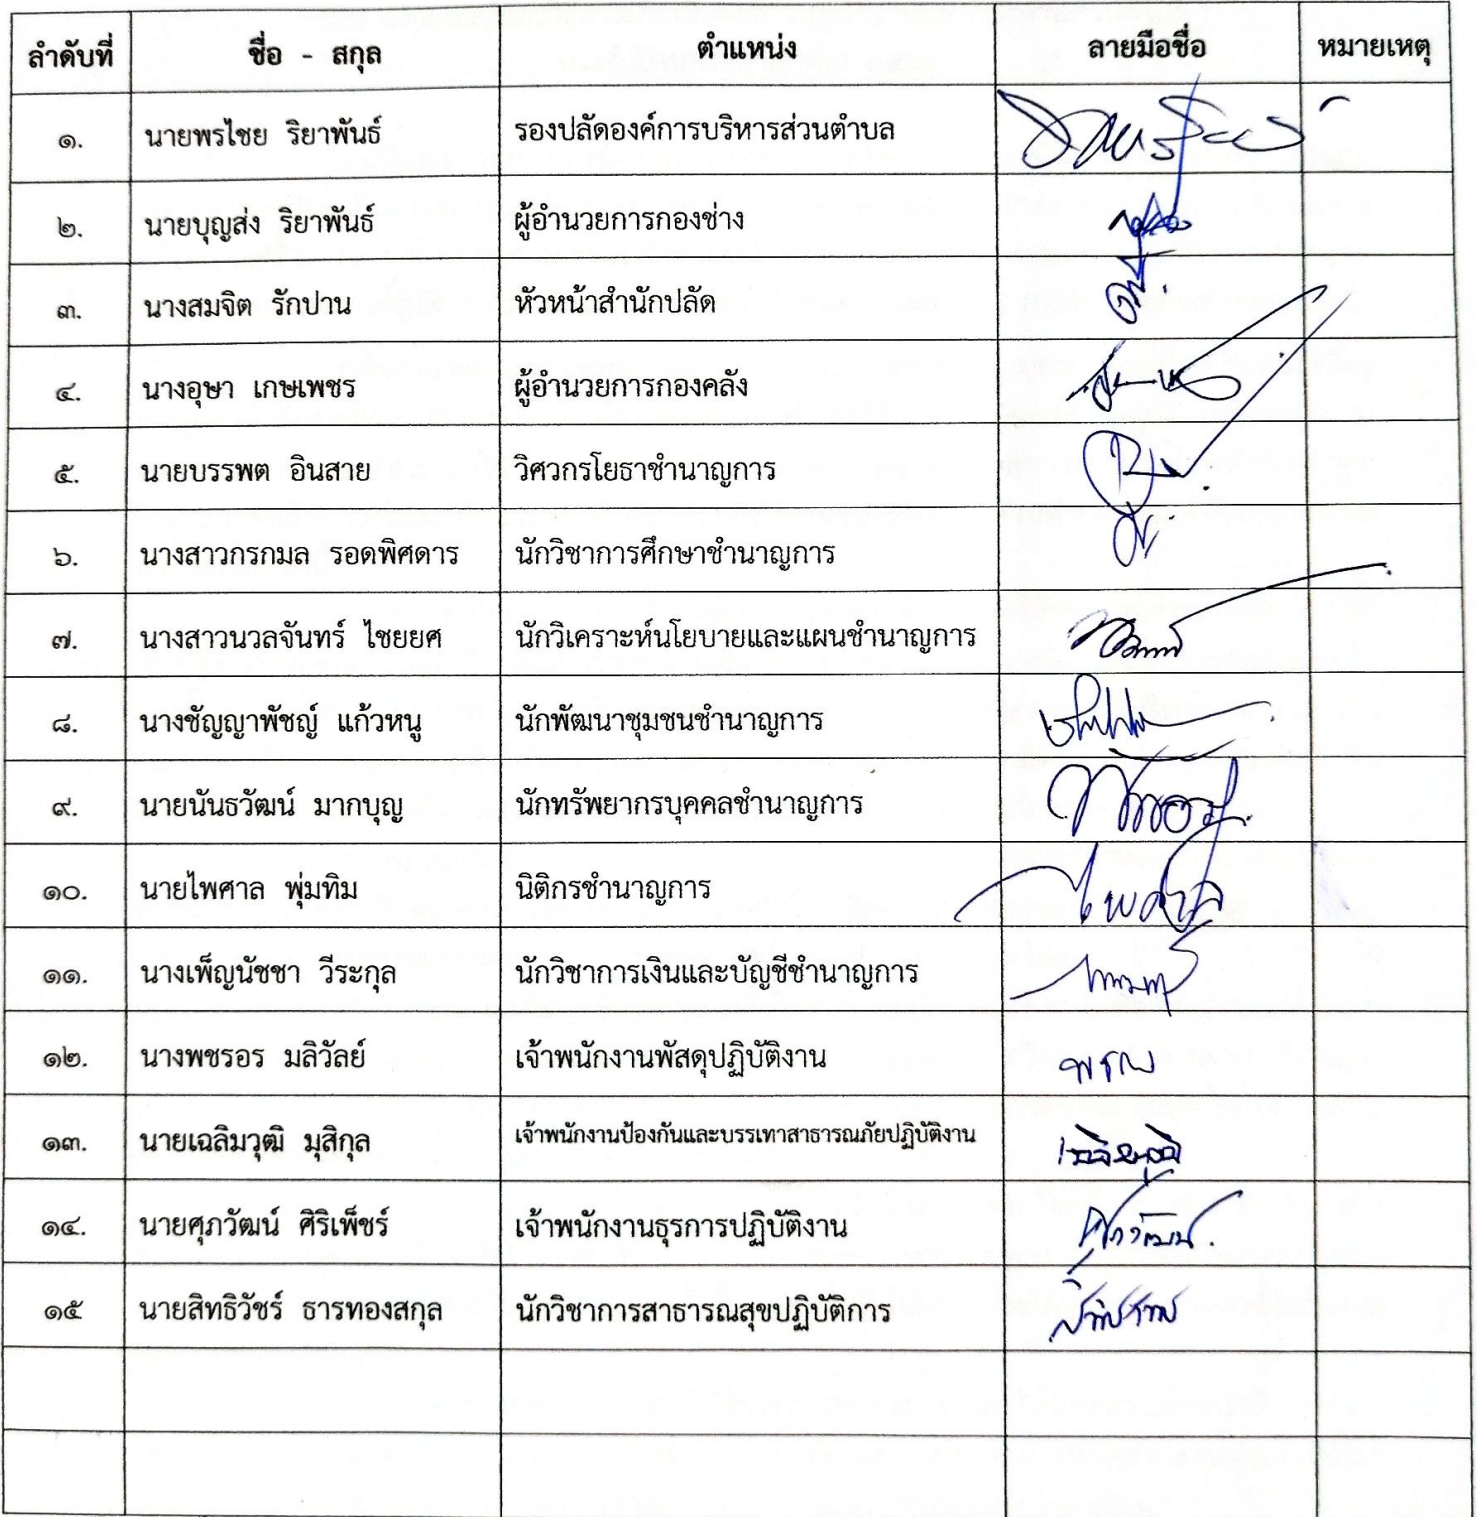 ลำดับที่ ชื่อ - สกุล ตำแหน่ง ลายมือชื่อ หมายเหตุ
๑. นายพรไชย ริยาพันธ์ รองปลัดองค์การบริหารส่วนตำบล
๒. นายบุญส่ง ริยาพันธ์ ผู้อำนวยการกองช่าง
๓. นางสมจิต รักปาน หัวหน้าสำนักปลัด
๔. นางอุษา เกษเพชร ผู้อำนวยการกองคลัง
๕. นายบรรพต อินสาย วิศวกรโยธาชำนาญการ
๖. นางสาวกรกมล รอดพิศดาร นักวิชาการศึกษาชำนาญการ
๗. นางสาวนวลจันทร์ ไชยยศ นักวิเคราะห์นโยบายและแผนชำนาญการ
๘. นางชัญญาพัชญ์ แก้วหนู นักพัฒนาชุมชนชำนาญการ
๙. นายนันธวัฒน์ มากบุญ นักทรัพยากรบุคคลชำนาญการ
๑๐. นายไพศาล พุ่มทิม นิติกรชำนาญการ ไพศาล
๑๑. นางเพ็ญนัชชา วีระกุล นักวิชาการเงินและบัญชีชำนาญการ
๑๒. นางพชรอร มลิวัลย์ เจ้าพนักงานพัสดุปฏิบัติงาน
๑๓. นายเฉลิมวุฒิ มุสิกุล เจ้าพนักงานป้องกันและบรรเทาสาธารณภัยปฏิบัติงาน เฉลิมวุฒิ
๑๔. นายศุภวัฒน์ ศิริเพ็ชร์ เจ้าพนักงานธุรการปฏิบัติงาน ศุภวัฒน์
๑๕ นายสิทธิวัชร์ ธารทองสกุล นักวิชาการสาธารณสุขปฏิบัติการ